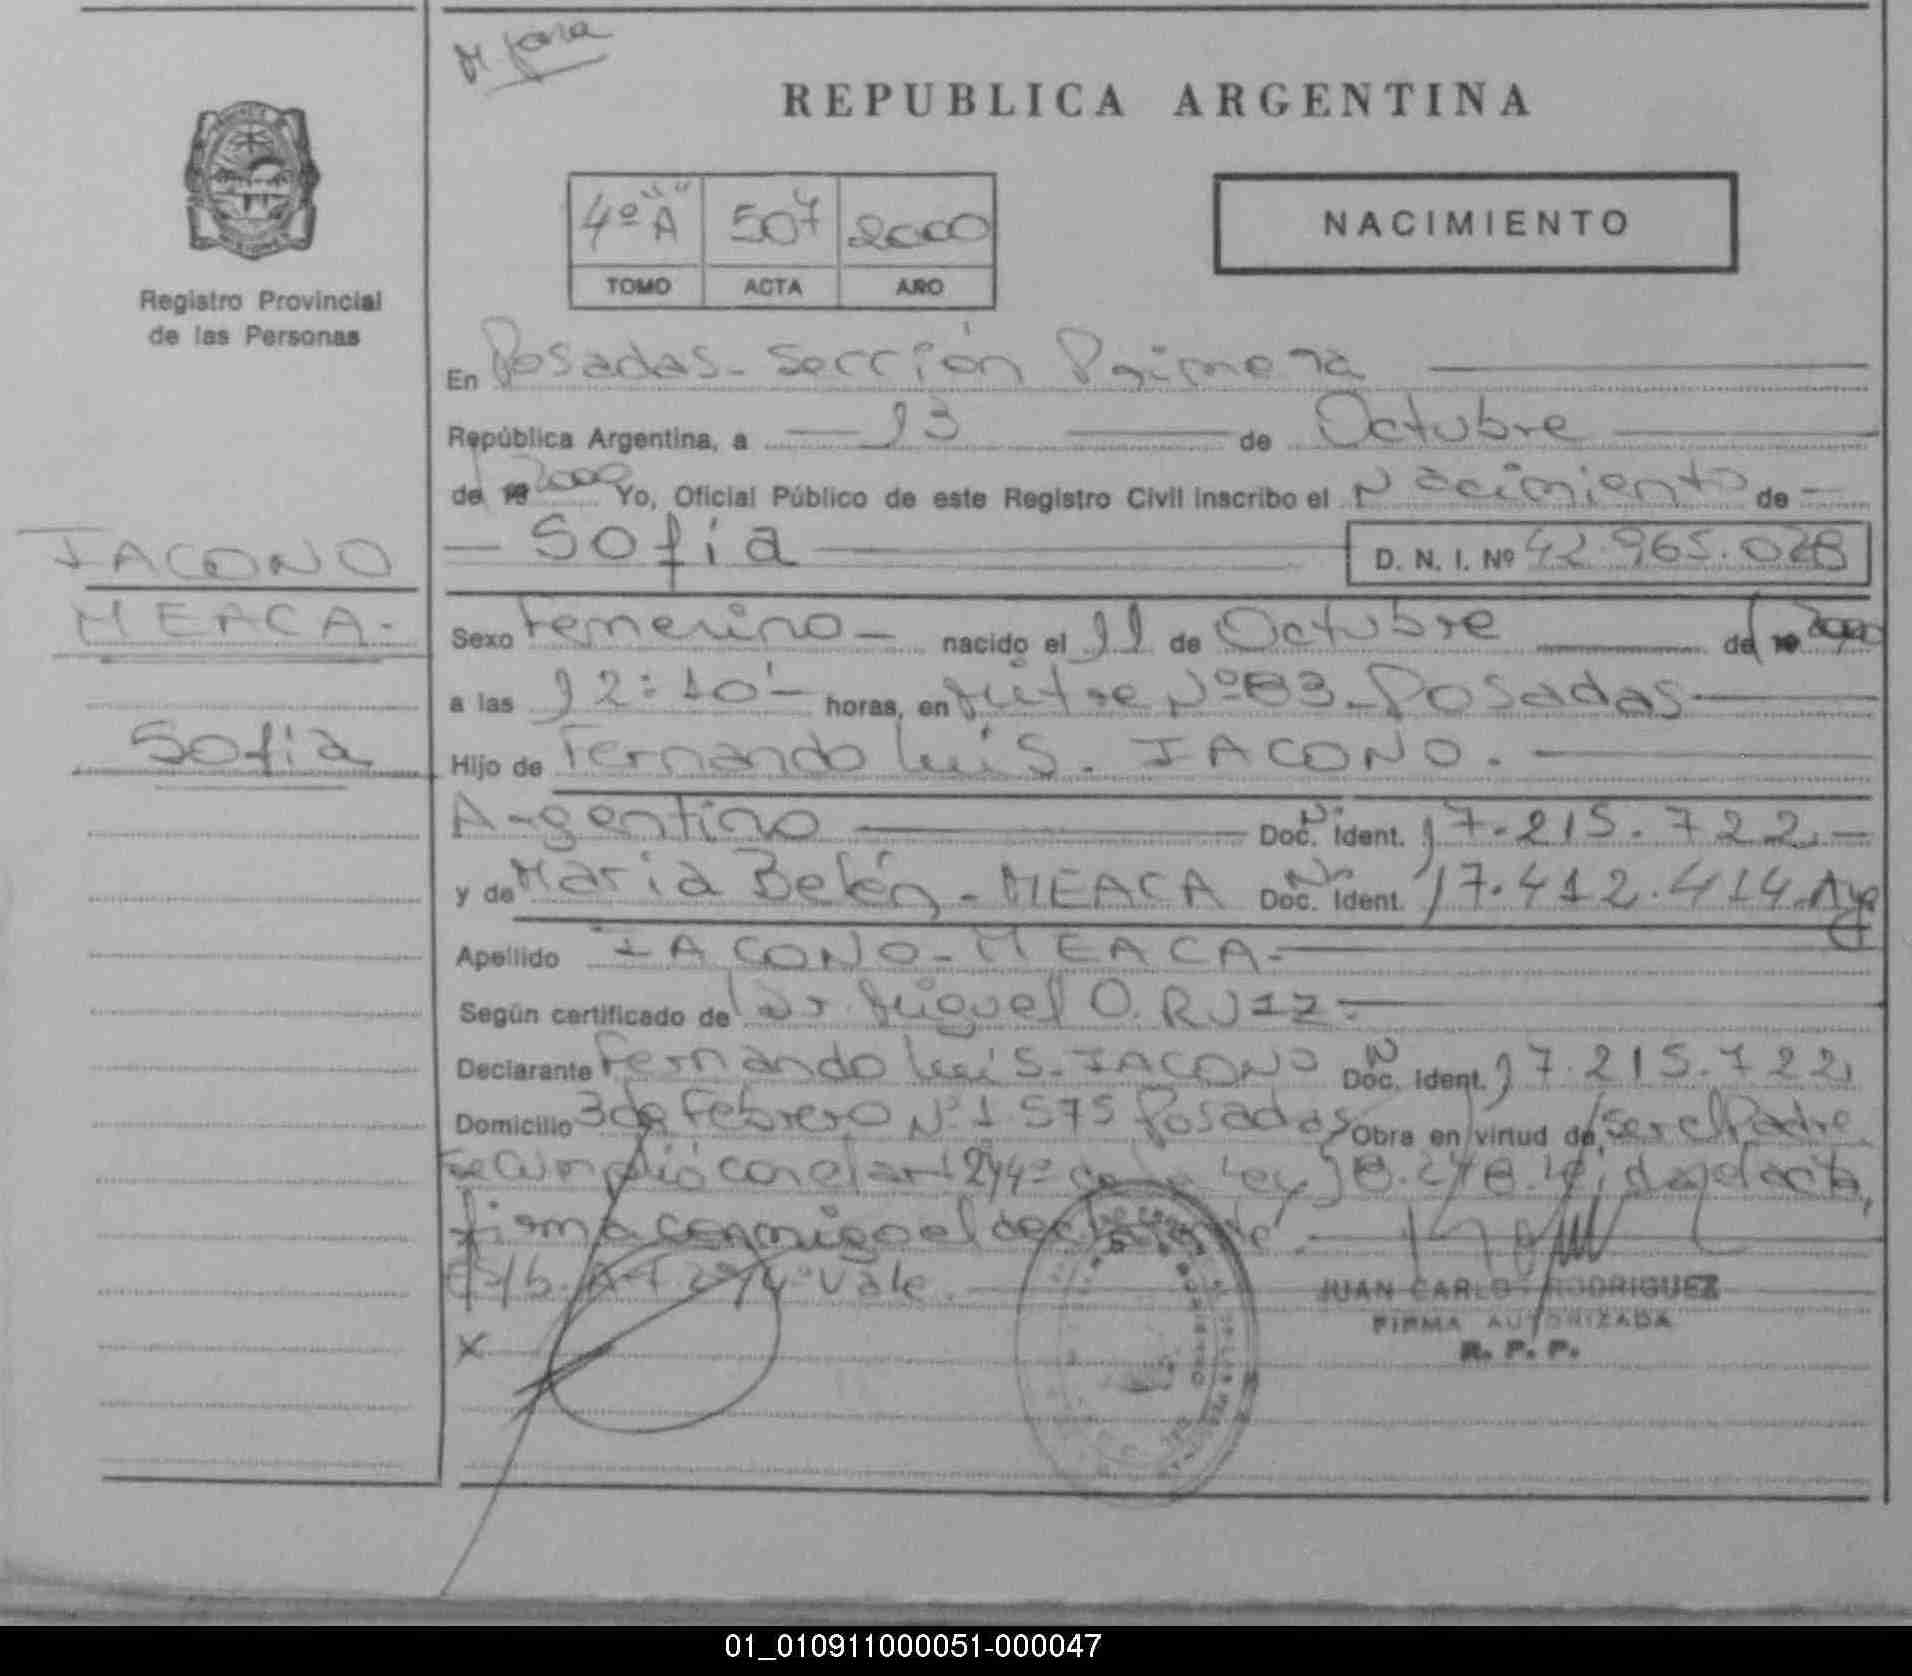 REPUBLICA ARGENTINA
4º "A" 507 2000
TOMO ACTA AÑO
NACIMIENTO
Registro Provincial
de las Personas
En Posadas - Sección Primera
República Argentina, a 13 de Octubre
de 19 2000 Yo, Oficial Público de este Registro Civil inscribo el Nacimiento de
Sofía
D. N. I. Nº 42.965.028
IACONO
MEACA.
Sofía
Sexo Femenino nacido el 11 de Octubre de 19 2000
a las 12:10' horas, en Mitre Nº 83 - Posadas
Hijo de Fernando Luis. IACONO.
Argentino Doc. Ident. Nº 17.215.722.
y de María Belén - MEACA Doc. Ident. Nº 17.412.414. Arg
Apellido IACONO - MEACA.
Según certificado de Dr. Miguel O. RUIZ.
Declarante Fernando Luis. IACONO Doc. Ident. N 17.215.722
Domicilio 3 de Febrero Nº 1575 Posadas Obra en virtud de ser el Padre
se cumplió con el art 294º de la Ley 18.248. leída el acta,
firma conmigo el declarante.
Art 294º Vale.
X
JUAN CARLOS RODRIGUEZ
FIRMA AUTORIZADA
R. P. P.
01_010911000051-000047